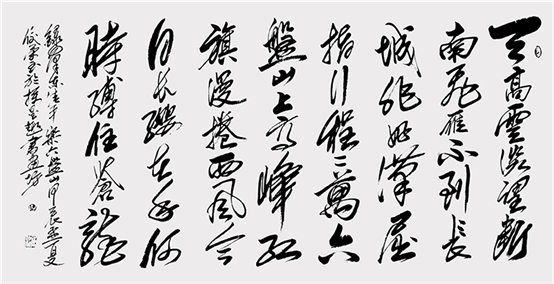 天高雲淡望斷
南飛雁不到長
城非好漢屈
指行程二萬六
盤山上高峰紅
旗漫捲西風今
日長纓在手何
時縛住蒼龍
澤東清平樂六盤山